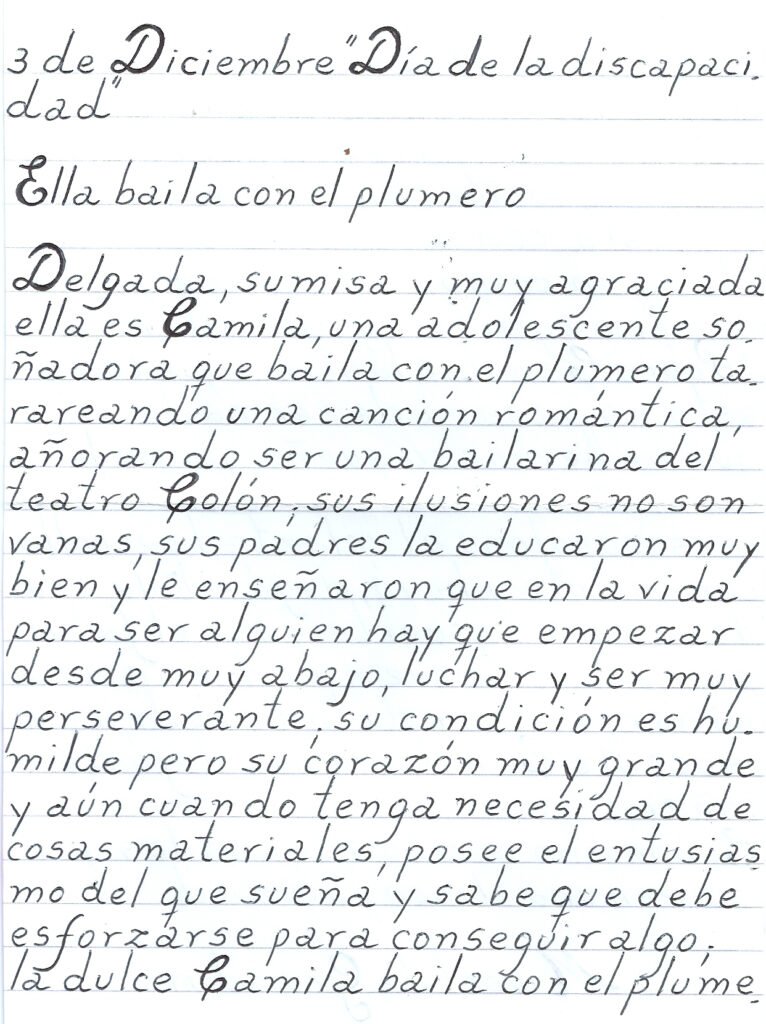 3 de Diciembre "Día de la discapaci.
dad"
Ella baila con el plumero
Delgada, sumisa y muy agraciada
ella es Camila, una adolescente so.
ñadora que baila con el plumero ta.
rareando una canción romántica,
añorando ser una bailarina del
teatro Colón; sus ilusiones no son
vanas, sus padres la educaron muy
bien y le enseñaron que en la vida
para ser alguien hay que empezar
desde muy abajo, luchar y ser muy
perseverante. su condición es hu.
milde pero su corazón muy grande
y aún cuando tenga necesidad de
cosas materiales, posee el entusias.
mo del que sueña y sabe que debe
esforzarse para conseguir algo;
la dulce Camila baila con el plume.